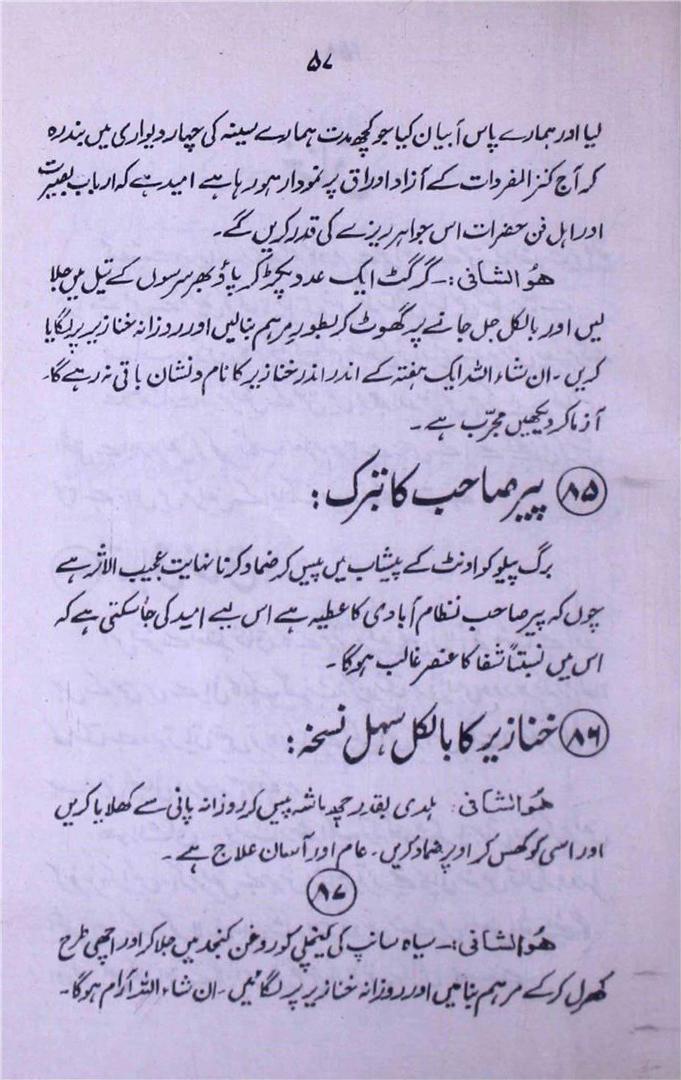 ۵۷
لیا اور ہمارے پاس آ بیان کیا جو کچھ مدت ہمارے سینہ کی چہار دیواری میں بند رہ
کر آج کنز المفردات کے آزاد اوراق پر نمودار ہو رہا ہے امید ہے کہ ارباب بصیرت
اور اہل فن حضرات اس جواہر ریزے کی قدر کریں گے۔
ھوالشافی:۔ گرگٹ ایک عدد پکڑ کر پاؤ بھر سرسوں کے تیل میں جلا
لیں اور بالکل جل جانے پر گھوٹ کر بطور مرہم بنالیں اور روزانہ خنازیر پر لگایا
کریں۔ ان شاء اللہ ایک ہفتہ کے اندر اندر خنازیر کا نام و نشان باقی نہ رہے گا۔
آزما کر دیکھیں مجرّب ہے۔
۸۵ پیر صاحب کا تبرک:
برگ پیلو کو اونٹ کے پیشاب میں پیس کر ضماد کرنا نہایت عجیب الاثر ہے
چوں کہ پیر صاحب نظام آبادی کا عطیہ ہے اس لیے امید کی جاسکتی ہے کہ
اس میں نسبتاً شفا کا عنصر غالب ہوگا۔
۸۶ خنازیر کا بالکل سہل نسخہ:
ھوالشافی: ہلدی بقدر چھ ماشہ پیس کر روزانہ پانی سے کھلایا کریں
اور اسی کو گھس کر اوپر ضماد کریں۔ عام اور آسان علاج ہے۔
۸۷
ھوالشافی:۔ سیاہ سانپ کی کینچلی کو روغن کنجد میں جلا کر اور اچھی طرح
کھرل کر کے مرہم بنائیں اور روزانہ خنازیر پر لگائیں۔ ان شاء اللہ آرام ہوگا۔